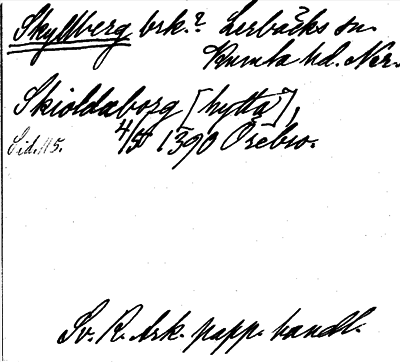 Skyllberg brk.? Lerbäcks sn.
Kumla hd. Ner.
Skioldaborg [hytta],
4/5 1390 Örebro.
Sid. 115.
Sv. R. Ark. papp. handl.